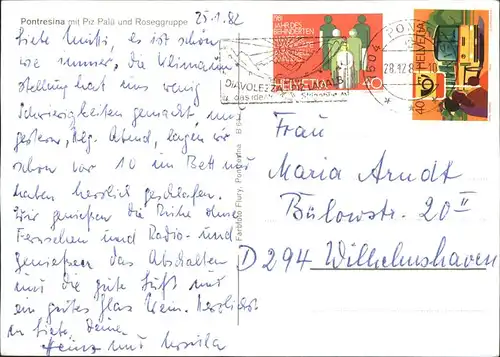 Pontresina mit Piz Palü und Roseggruppe
25.1.82
Liebe Mutti, es ist schön
wie immer, die Klimaum
stellung hat uns wenig
Schwierigkeiten gemacht, und
gestern, Abend, lagen wir
schon vor 10 im Bett und
haben herrlich geschlafen.
Wir genießen die Ruhe ohne
Fernsehen und Radio - und
genießen das Abschalten
und die gute Luft und
ein gutes Glas Wein. Herzlichst
in Liebe, Deine
Heinz und Ursula
Farbfoto Flury, Pontresina
1981
JAHR DES BEHINDERTEN
HELVETIA 40
DIAVOLEZZA
HELVETIA
40
7504
28.12.8
Frau
Maria Arndt
Bülowstr. 20 II
D 294 Wilhelmshaven